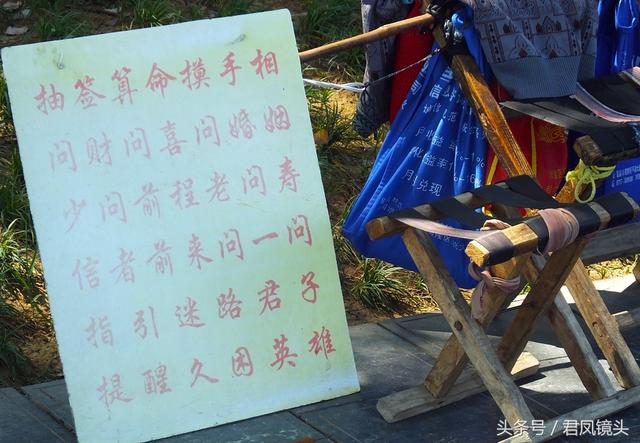 抽签算命摸手相
问财问喜问婚姻
少问前程老问寿
信者前来问一问
指引迷路君子
提醒久困英雄
月兑现
头条号/君凤镜头